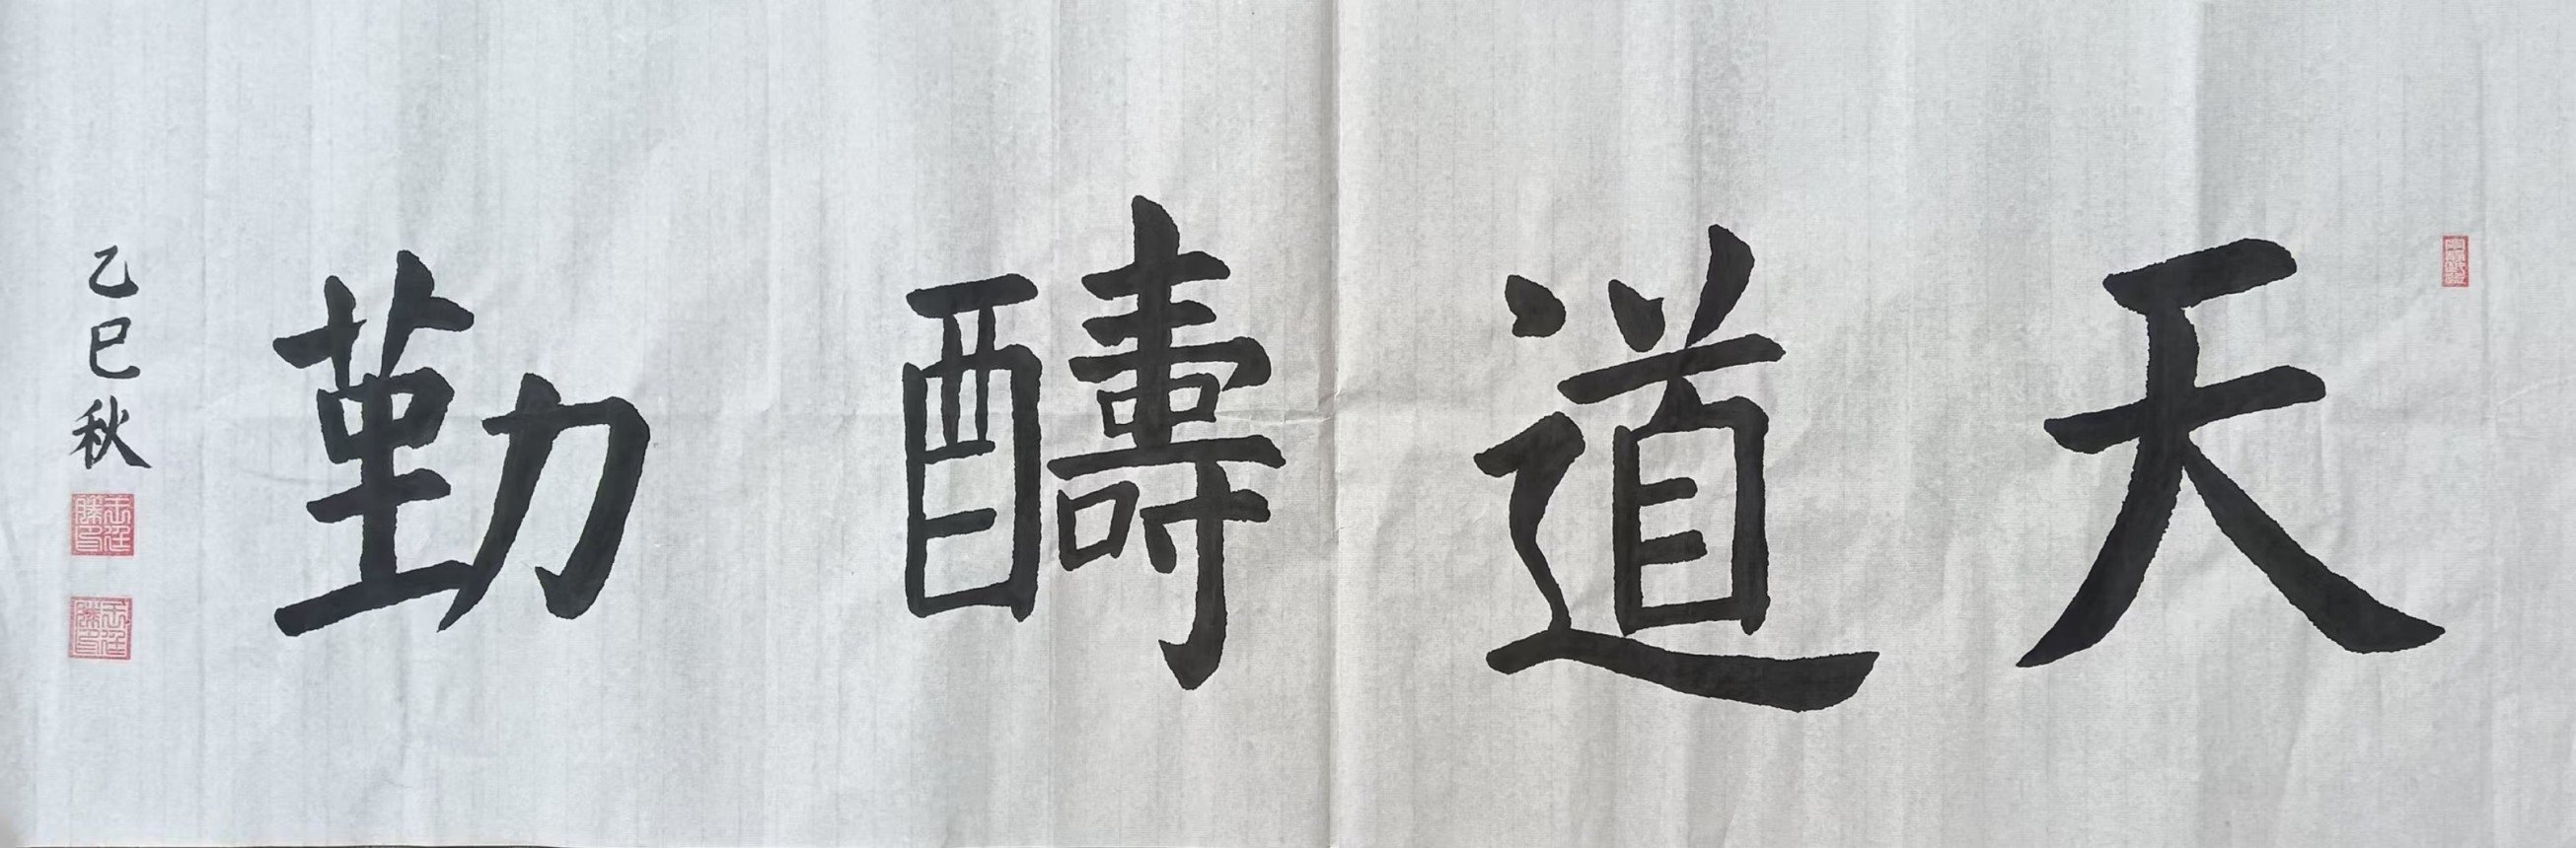 天道醻勤
乙巳秋